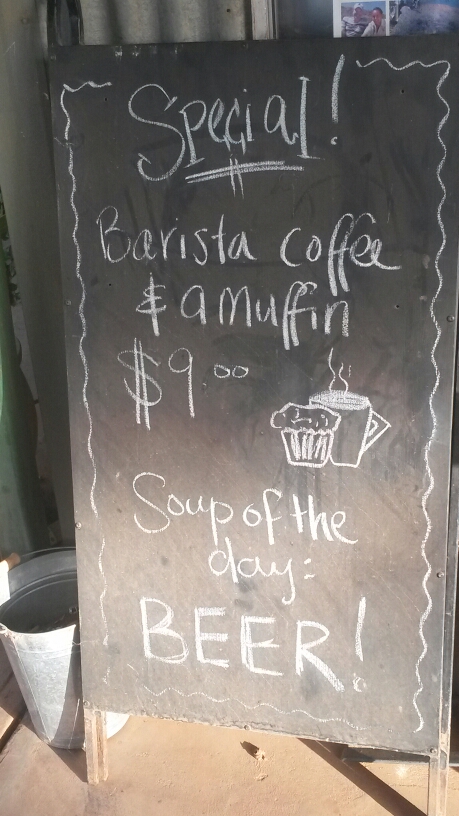 Special!
Barista coffee
& a Muffin
$9.00
Soup of the
day:
BEER!